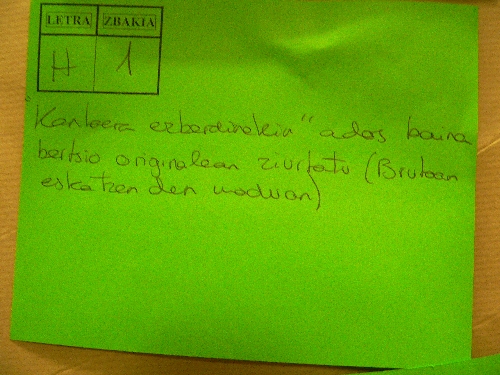 LETRA ZBAKIA
H 1
"Kankera ezberdinekin" ados baina
bertsio originalean ziurtatu (Brutoan
eskatzen den moduan)